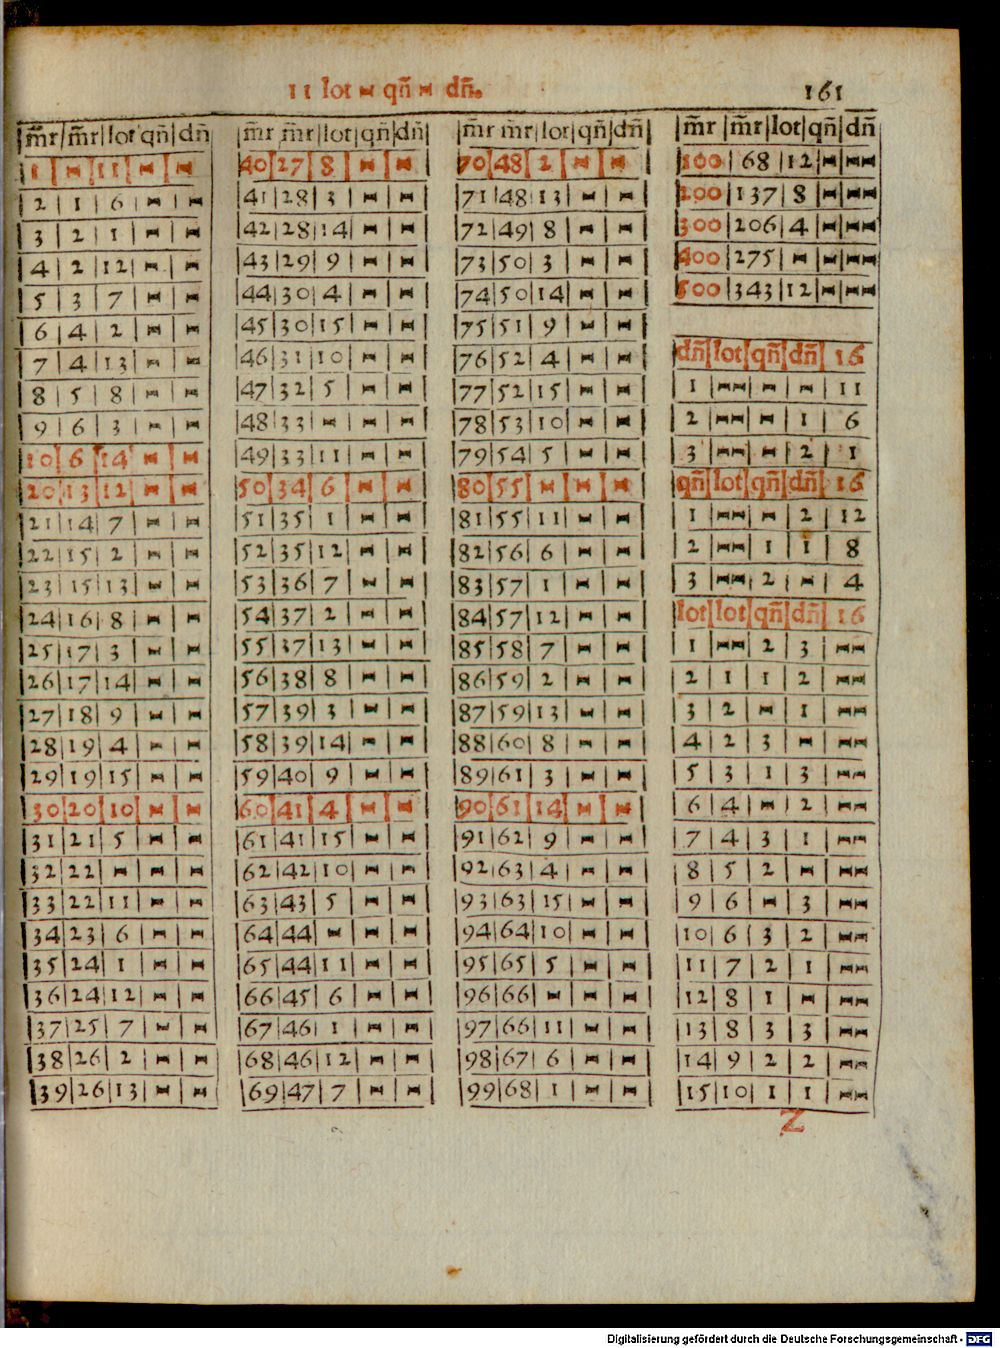 11 lot – qn̄ – dn̄.
161
m̄r m̄r lot qn̄ dn̄
1 – 11 – –
2 1 6 – –
3 2 1 – –
4 2 12 – –
5 3 7 – –
6 4 2 – –
7 4 13 – –
8 5 8 – –
9 6 3 – –
10 6 14 – –
20 13 12 – –
21 14 7 – –
22 15 2 – –
23 15 13 – –
24 16 8 – –
25 17 3 – –
26 17 14 – –
27 18 9 – –
28 19 4 – –
29 19 15 – –
30 20 10 – –
31 21 5 – –
32 22 – – –
33 22 11 – –
34 23 6 – –
35 24 1 – –
36 24 12 – –
37 25 7 – –
38 26 2 – –
39 26 13 – –
m̄r m̄r lot qn̄ dn̄
40 27 8 – –
41 28 3 – –
42 28 14 – –
43 29 9 – –
44 30 4 – –
45 30 15 – –
46 31 10 – –
47 32 5 – –
48 33 – – –
49 33 11 – –
50 34 6 – –
51 35 1 – –
52 35 12 – –
53 36 7 – –
54 37 2 – –
55 37 13 – –
56 38 8 – –
57 39 3 – –
58 39 14 – –
59 40 9 – –
60 41 4 – –
61 41 15 – –
62 42 10 – –
63 43 5 – –
64 44 – – –
65 44 11 – –
66 45 6 – –
67 46 1 – –
68 46 12 – –
69 47 7 – –
m̄r m̄r lot qn̄ dn̄
70 48 2 – –
71 48 13 – –
72 49 8 – –
73 50 3 – –
74 50 14 – –
75 51 9 – –
76 52 4 – –
77 52 15 – –
78 53 10 – –
79 54 5 – –
80 55 – – –
81 55 11 – –
82 56 6 – –
83 57 1 – –
84 57 12 – –
85 58 7 – –
86 59 2 – –
87 59 13 – –
88 60 8 – –
89 61 3 – –
90 61 14 – –
91 62 9 – –
92 63 4 – –
93 63 15 – –
94 64 10 – –
95 65 5 – –
96 66 – – –
97 66 11 – –
98 67 6 – –
99 68 1 – –
m̄r m̄r lot qn̄ dn̄
100 68 12 – ––
200 137 8 – ––
300 206 4 – ––
400 275 – – ––
500 343 12 – ––
dn̄ lot qn̄ dn̄ 16
1 –– – – 11
2 –– – 1 6
3 –– – 2 1
qn̄ lot qn̄ dn̄ 16
1 –– – 2 12
2 –– 1 1 8
3 –– 2 – 4
lot lot qn̄ dn̄ 16
1 –– 2 3 ––
2 1 1 2 ––
3 2 – 1 ––
4 2 3 – ––
5 3 1 3 ––
6 4 – 2 ––
7 4 3 1 ––
8 5 2 – ––
9 6 – 3 ––
10 6 3 2 ––
11 7 2 1 ––
12 8 1 – ––
13 8 3 3 ––
14 9 2 2 ––
15 10 1 1 ––
Z
Digitalisierung gefördert durch die Deutsche Forschungsgemeinschaft - DFG